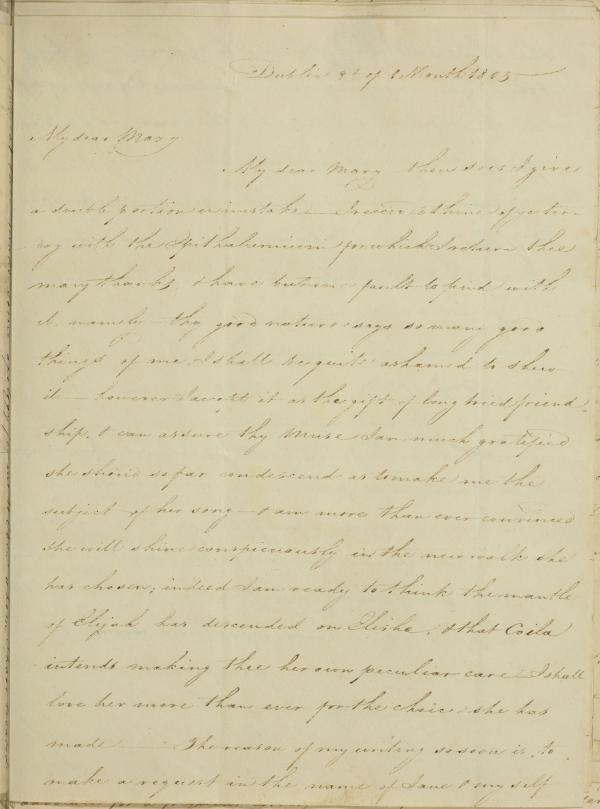 Dublin 8th of 1 Month 1805
My dear Mary
My dear Mary there does I give
a double portion in mistake — I received thine of yester-
day with the Epithalemium for which I return thee
many thanks, I have but one fault to find with
it, namely — thy good nature says so many good
things of me I shall be quite ashamed to shew
it — however I accept it as the gift of long tried friend-
ship, & can assure thy Muse I am much gratified
she should so far condescend as to make me the
subject of her song — & am more than ever convinced
she will shine conspicuously in the new walk she
has chosen; indeed I am ready to think the mantle
of Elijah has descended on Elisha, & that Coila
intends making thee her own peculiar care — I shall
love her more than ever for the choice she has
made — The reason of my writing so soon is, to
make a request in the name of Jane & myself